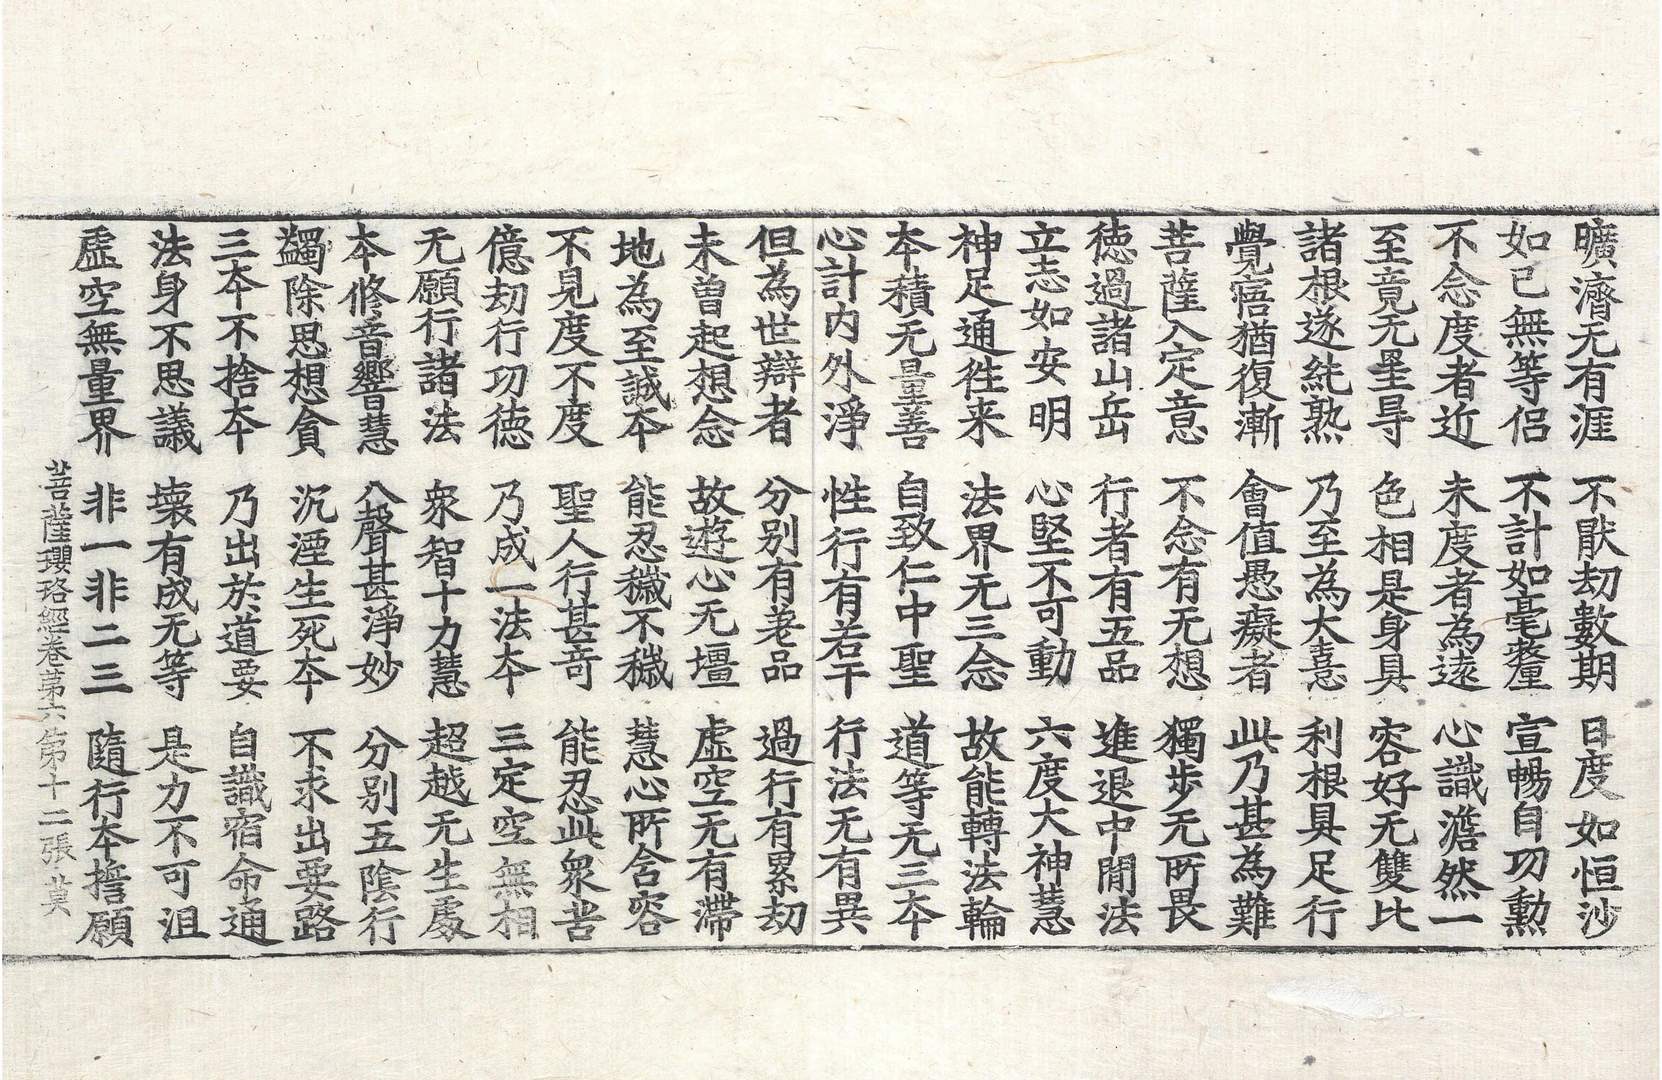 曠濟无有涯 不厭劫數期 日度如恒沙
如已無等侶 不計如毫釐 宣暢自功勳
不念度者近 未度者為遠 心識澹然一
至竟无罣㝵 色相是身具 容好无雙比
諸根遂純熟 乃至為大憙 利根具足行
覺寤猶復漸 會值愚癡者 此乃甚為難
菩薩入定意 不念有无想 獨步无所畏
徳過諸山岳 行者有五品 進退中閒法
立志如安明 心堅不可動 六度大神慧
神足通徃来 法界无三念 故能轉法輪
夲積无量善 自致仁中聖 道等无三夲
心計内外淨 性行有若干 行法无有異
但為世辯者 分别有差品 過行有累劫
未曽起想念 故遊心无壃 虛空无有滯
地為至誠夲 能忍穢不穢 慧心所含容
不見度不度 聖人行甚竒 能忍此衆苦
億劫行功徳 乃成一法夲 三定空無相
无願行諸法 衆智十力慧 超越无生處
夲修音響慧 八聲甚淨妙 分别五陰行
蠲除思想貪 沉湮生死夲 不求出要路
三夲不捨夲 乃出於道要 自識宿命通
法身不思議 壊有成无等 是力不可沮
虛空無量界 非一非二三 隨行夲誓願
菩薩瓔珞經卷苐六 第十二張 莫